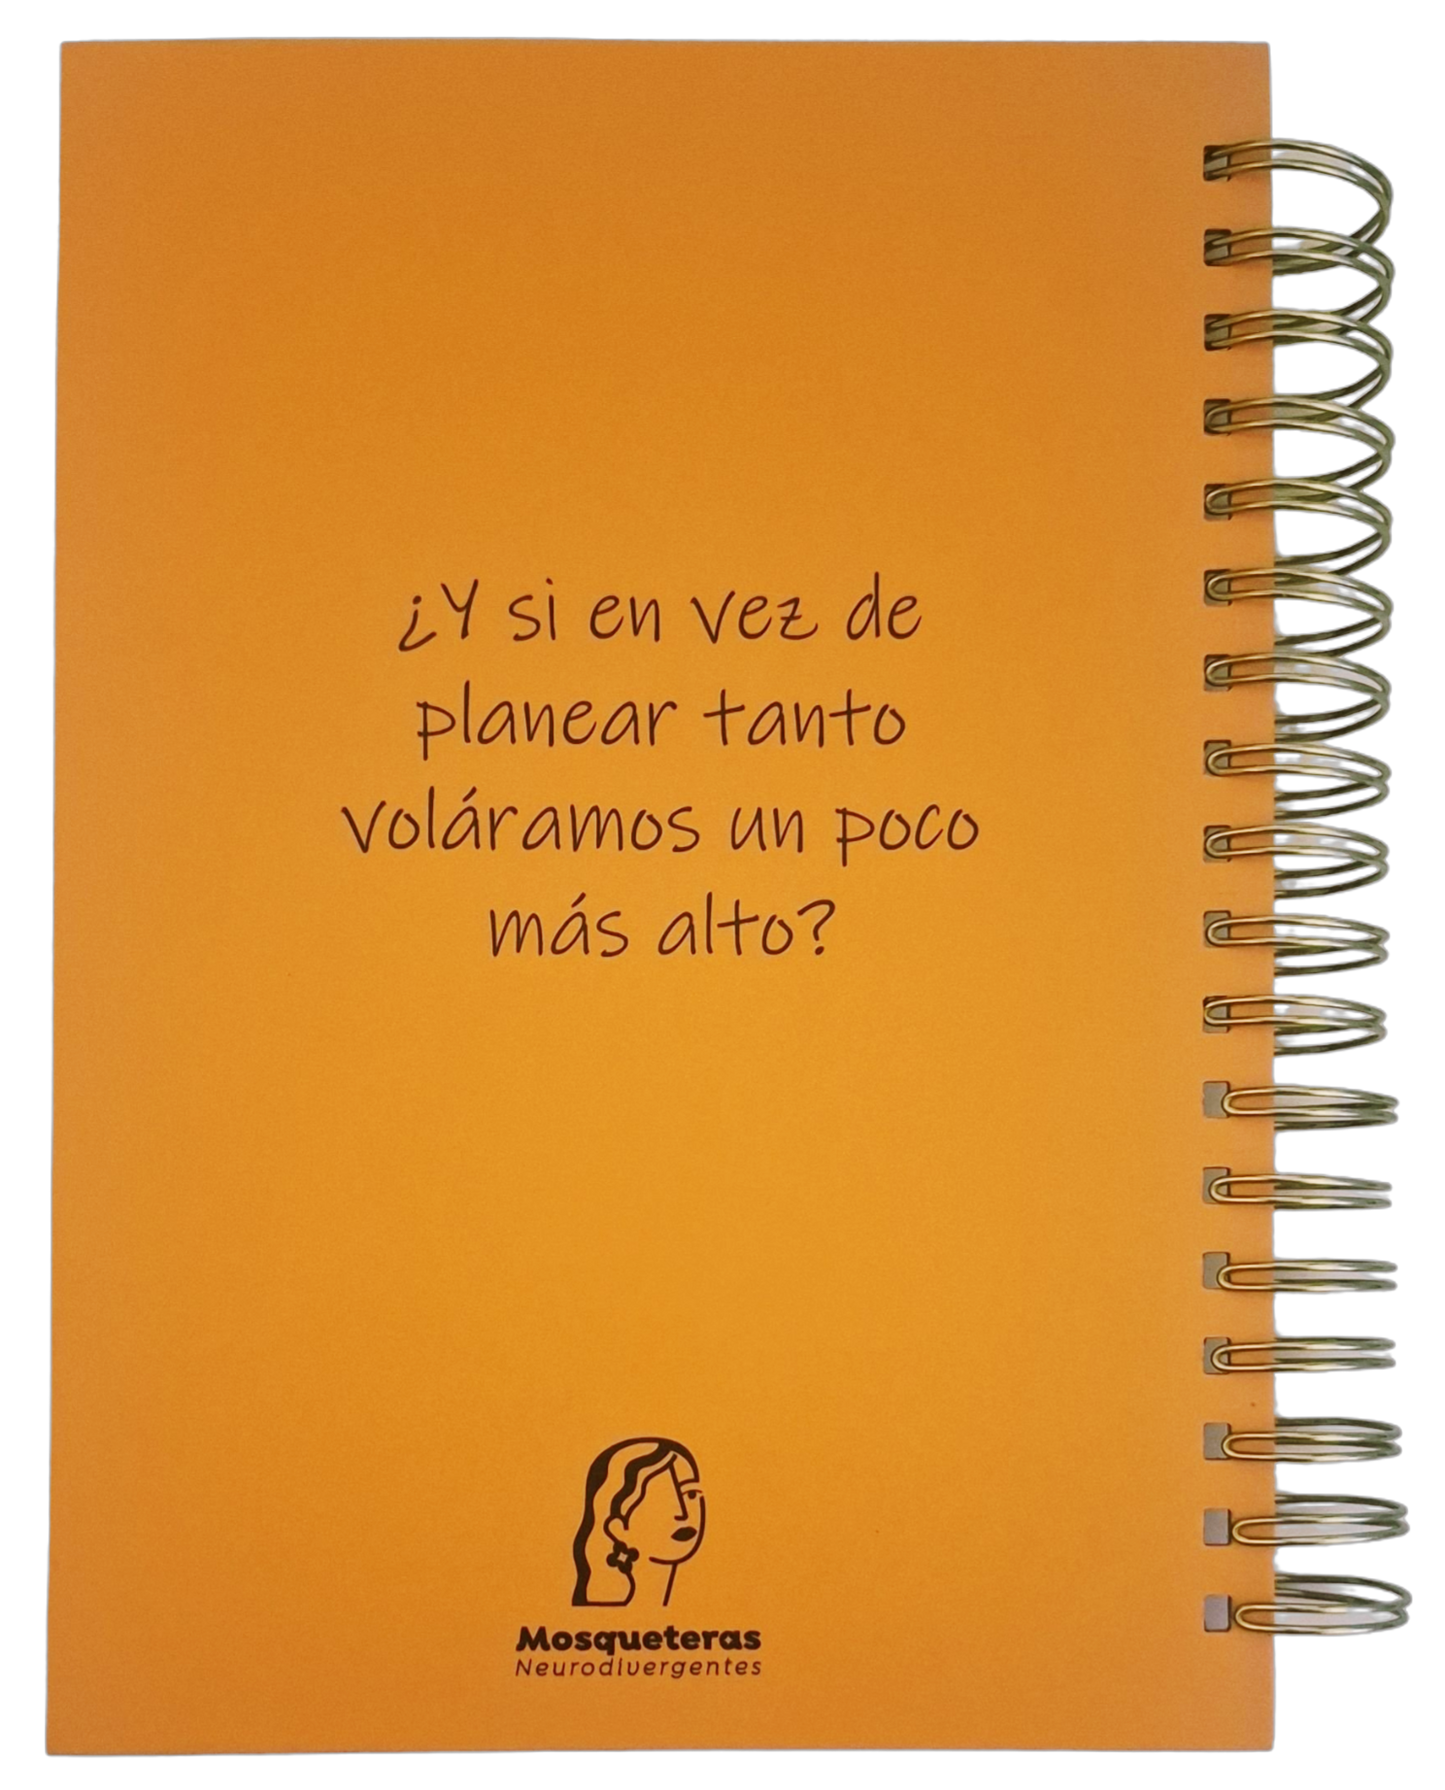 ¿Y si en vez de
planear tanto
voláramos un poco
más alto?
Mosqueteras
Neurodivergentes